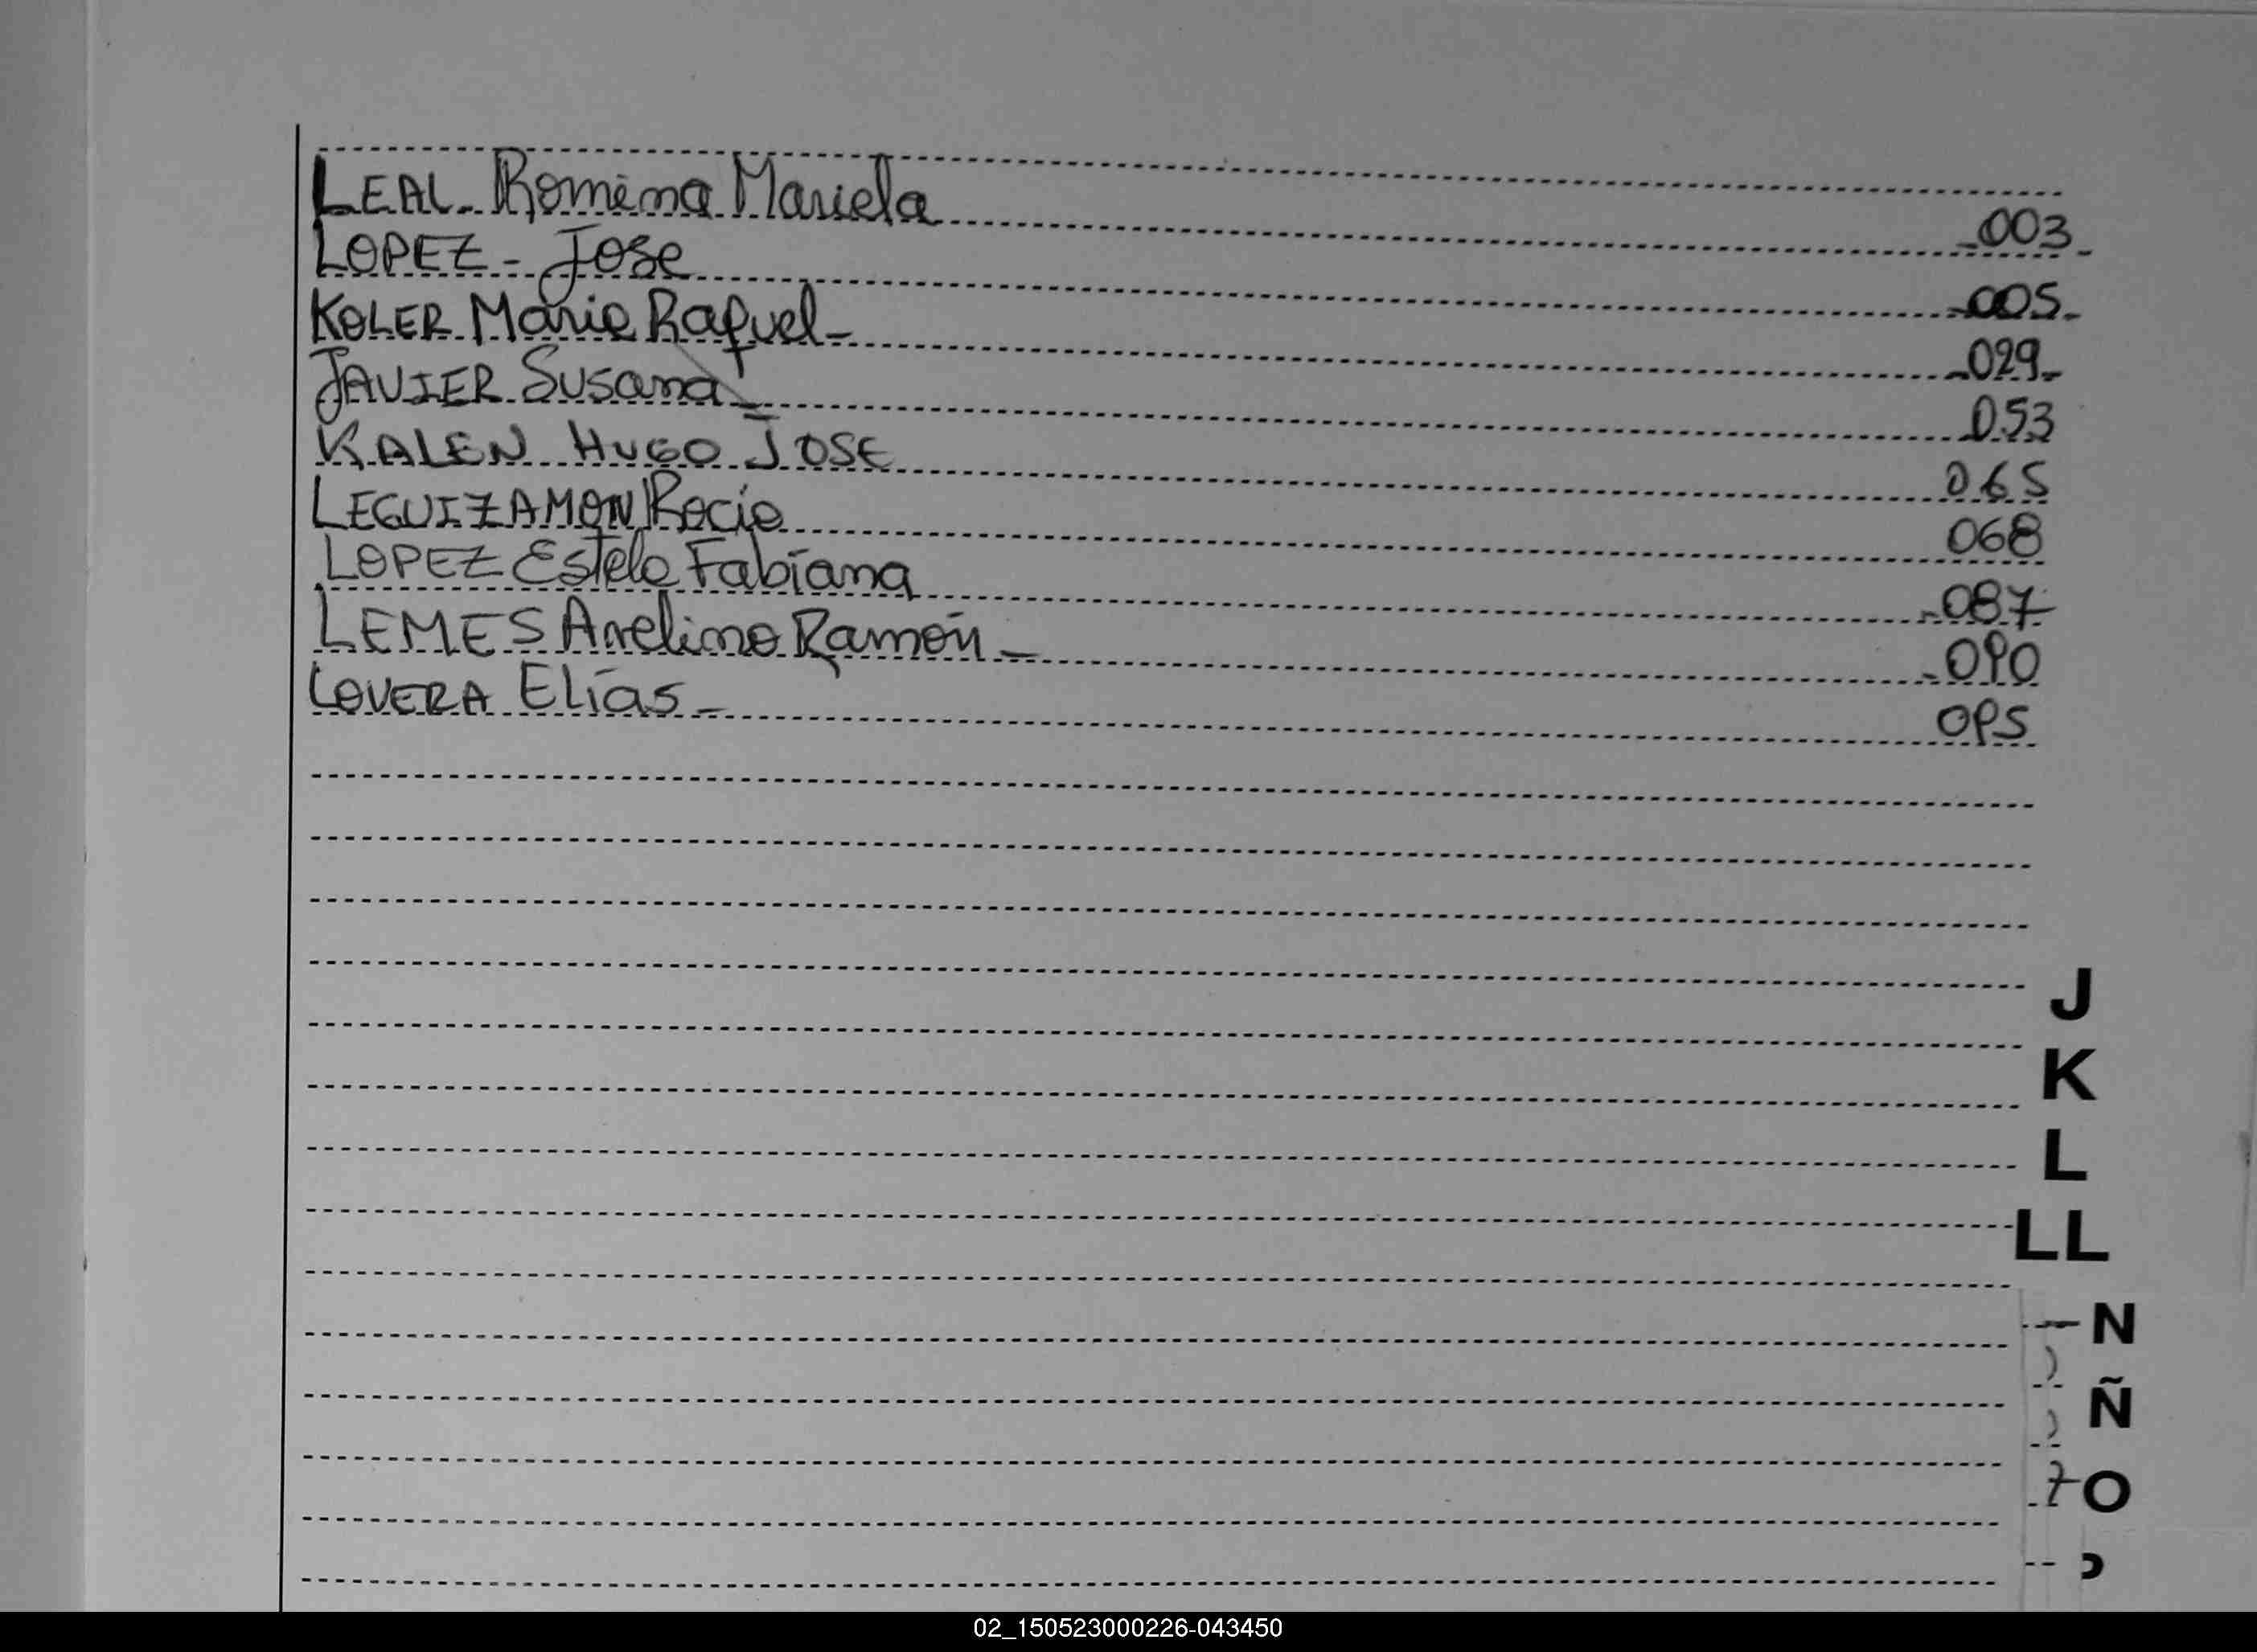 LEAL - Romina Mariela - 003 -
LOPEZ - Jose - 005 -
KOLER Maria Raquel - 029 -
JAVIER Susana - 053
KALEN HUGO JOSE 065
LEGUIZAMON Rocio 068
LOPEZ Estela Fabiana - 087
LEMES Avelino Ramón - - 090
LOVERA Elías - 095
J
K
L
LL
N
Ñ
7 O
02_150523000226-043450